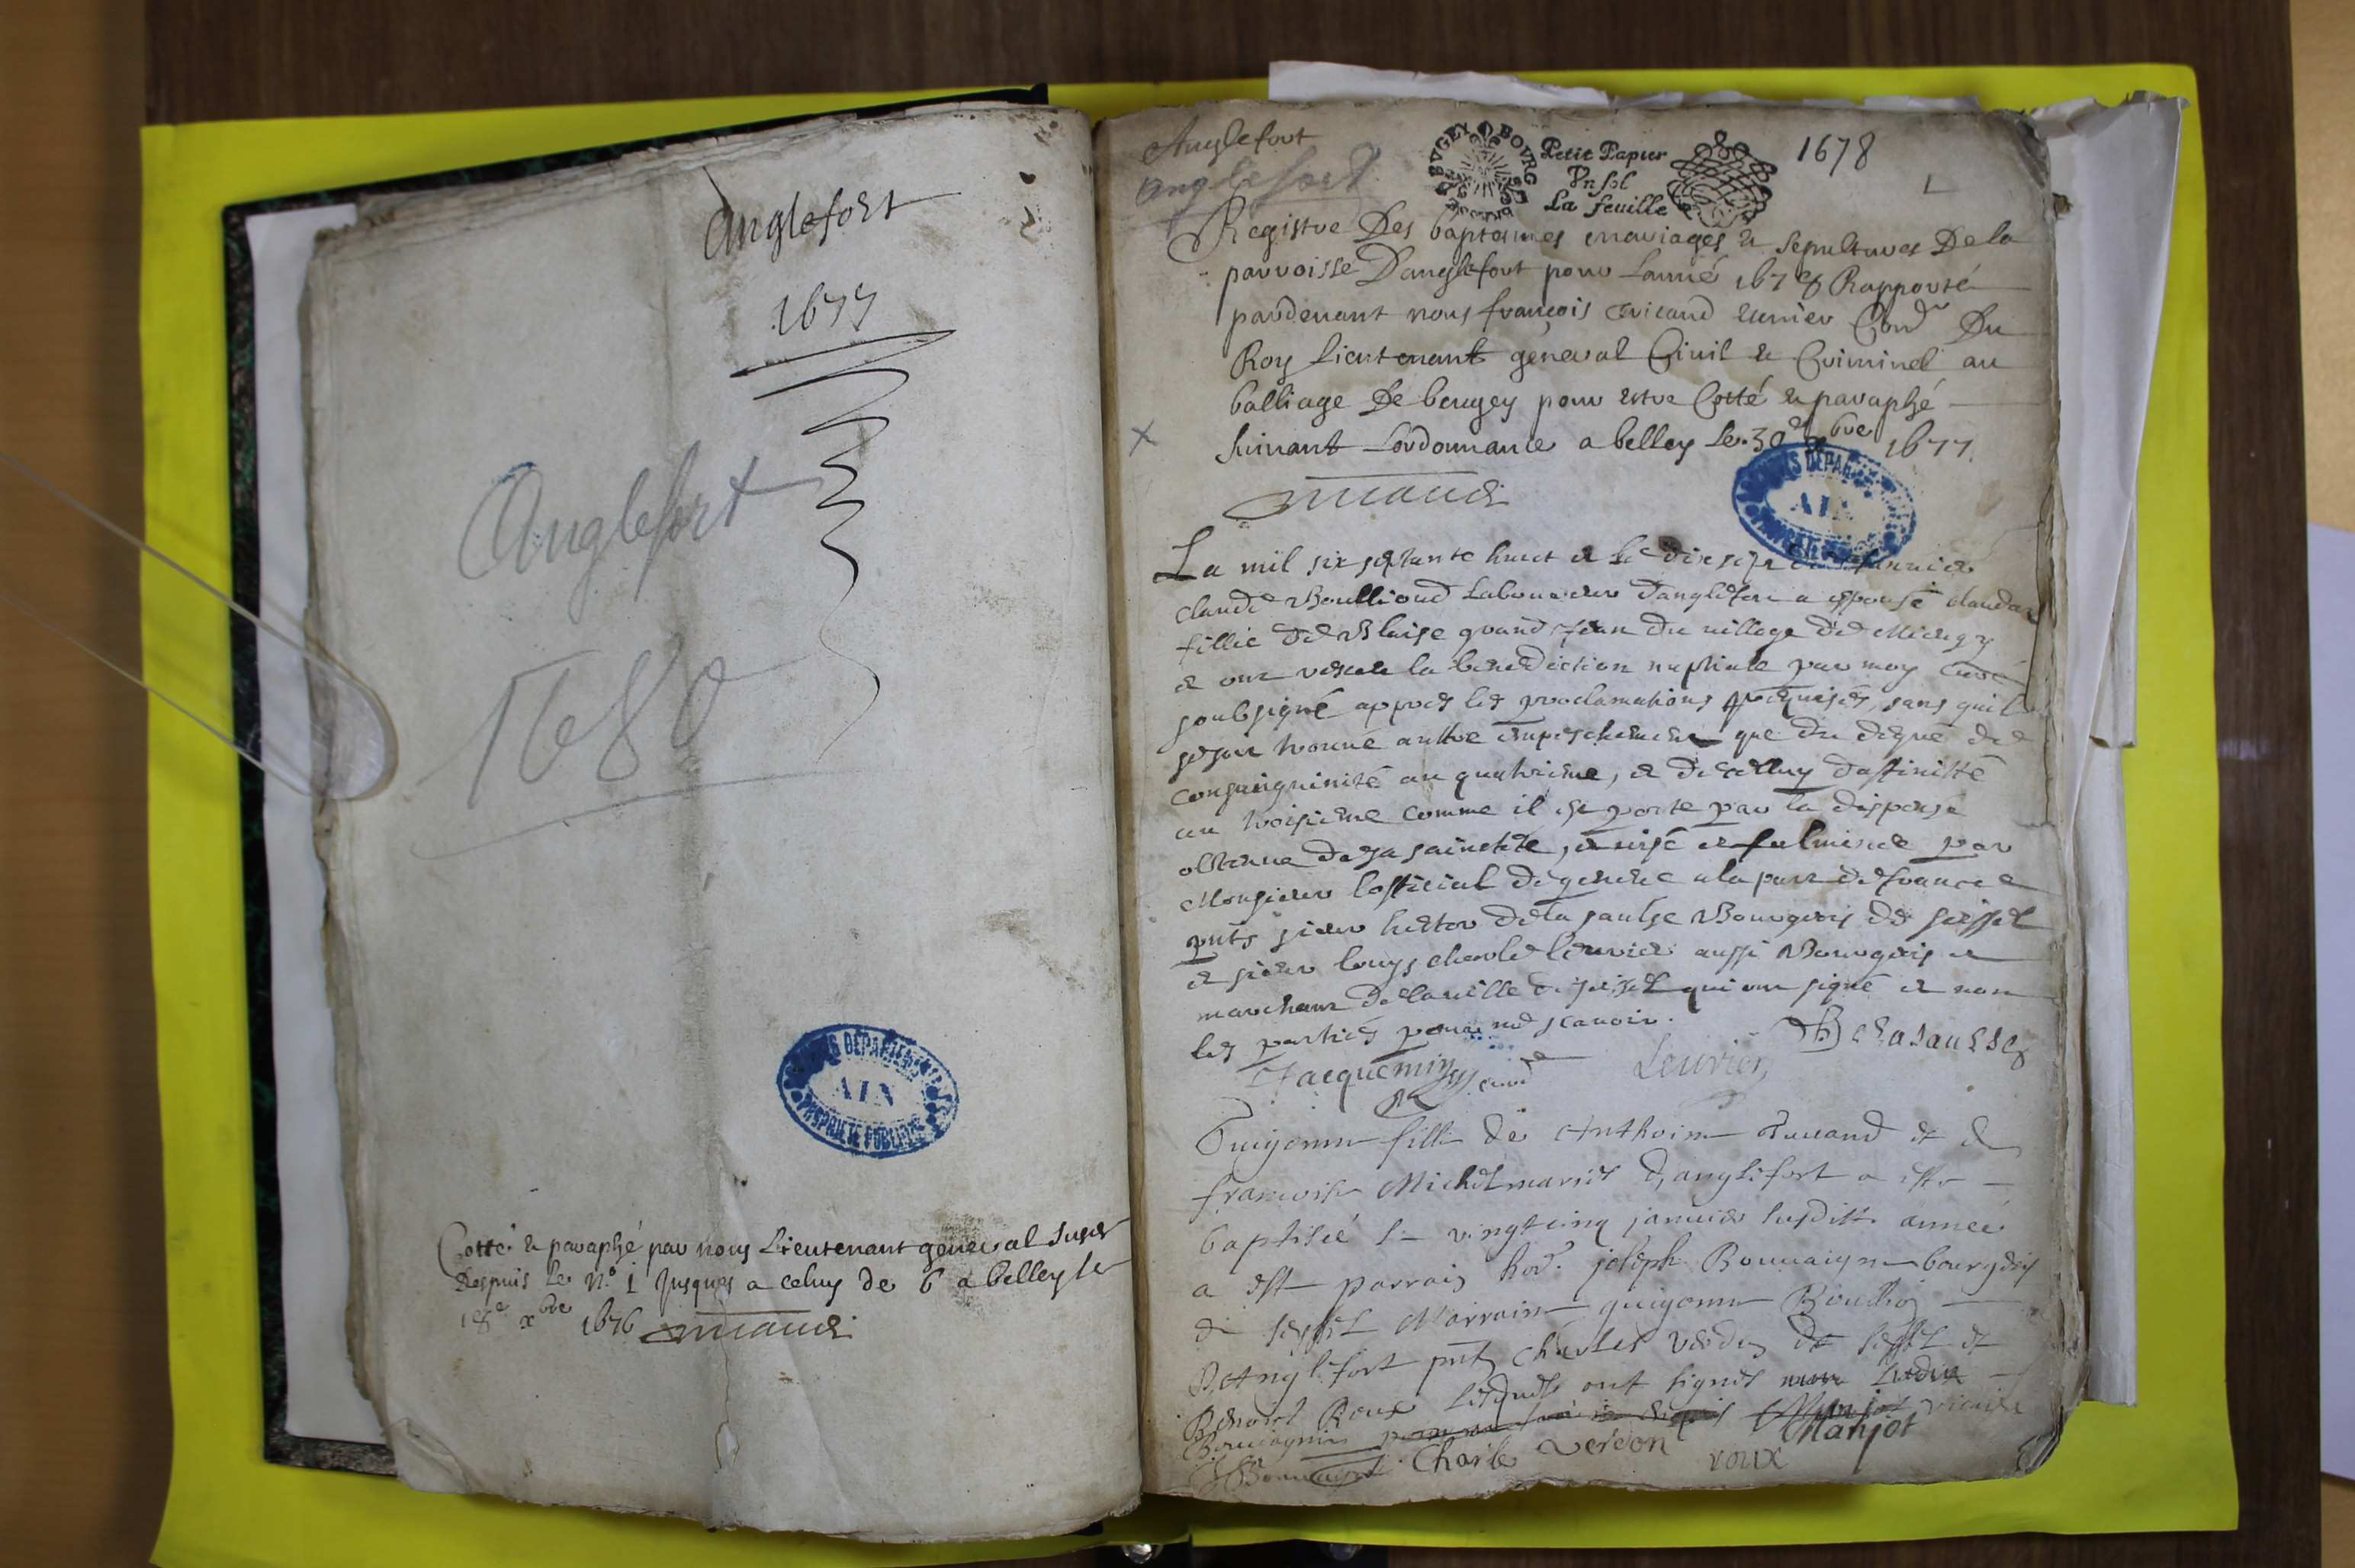 Anglefort
1677
Anglefort
1680
ARCHIVES DEPARTEMENTALES
AIN
PROPRIETE PUBLIQUE
Cotté & paraphé par nous Lieutenant general
Depuis le N.º 1 Jusques a celuy de 6 a belley le
18e xbre 1676
Anglefort
Anglefort
BVGEY BOVRG
Petit Papier
Vn sol
La feuille
1678
Registre Des baptesmes mariages & sepultures De la
parroisse D'anglefort pour L'anné 1678 Rapporté
pardevant nous françois Du
Roy Lieutenant general Civil & Criminel au
balliage De beugey pour estre Cotté & paraphé
suivant L'ordonnance a belley le 30e xbre 1677
AIN
La mil six septante huict & le
claude Boullioud Laboureur d'anglefort a espousé clauda
fillie de Blaise grand Jean du village de
& ont la benediction nuptiale par moy curé
soubsigné appres les proclamations requises, sans quil
se soit trouvé aultre empeschement que du degré de
consanguinité au quatrieme, & de celluy d'affinitté
au troisieme comme il est porté par la dispense
obtenue de sa saincteté, & fulminée par
Monsieur l'official de geneve a la part de france
pnts sieur hector de la saulse Bourgeois de seissel
& sieur louys charle leuvrier aussi Bourgeois &
marchant de la ville de seissel qui ont signé & non
les parties pour ne sçavoir.
Jacquemin curé Leuvrier Delasausse
Guigonne fillie de Anthoine & de
francoise Michel mariés d'anglefort a esté
baptisée le vingt cinq janvier susditte année
a esté parrain hod. joseph Bouvaigne bourgeois
de seyssel Marraine guigonne
D'Anglefort pnts charles verdon de seyssel &
Benoict Roux lesquels ont signés
vicaire
Manjot
Charle verdon
roux